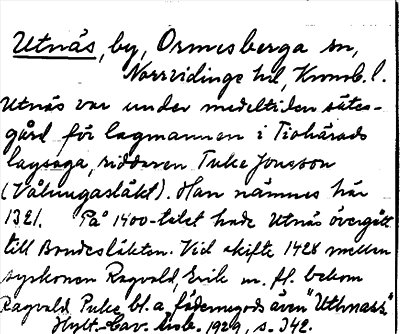 Utnäs, by, Ormesberga sn,
Norrvidinge hd, Kronob. l.
Utnäs var under medeltiden sätes-
gård för lagmannen i Tiohärads
lagsaga, riddaren Tuke Jonsson
(Vålungasläkt). Han nämnes här
1321. På 1400-talet hade Utnäs övergått
till Bondesläkten. Vid skifte 1428 mellan
syskonen Ragvald, Erik m. fl. bekom
Ragvald Puke bl. a. fädernegods även "Uthnaas."
Hylt-Cav. 1929, s. 342.